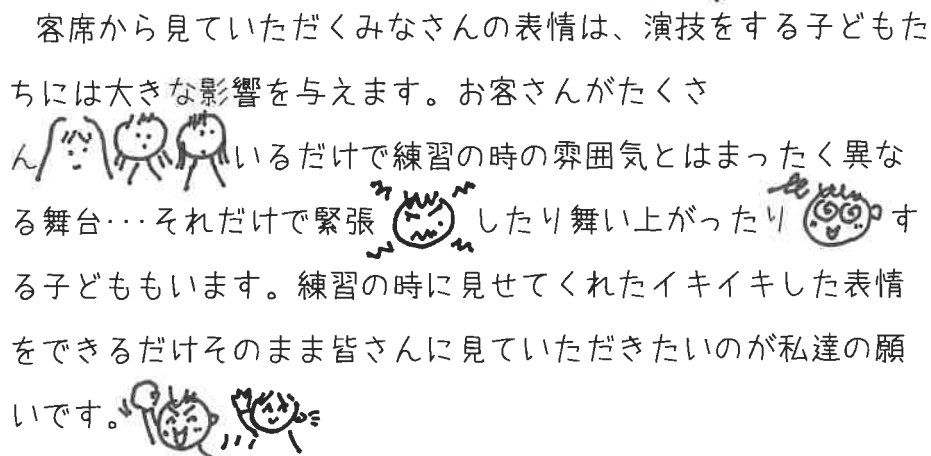 客席から見ていただくみなさんの表情は、演技をする子どもた
ちには大きな影響を与えます。お客さんがたくさ
んいるだけで練習の時の雰囲気とはまったく異な
る舞台･･･それだけで緊張したり舞い上がったりす
る子どももいます。練習の時に見せてくれたイキイキした表情
をできるだけそのまま皆さんに見ていただきたいのが私達の願
いです。